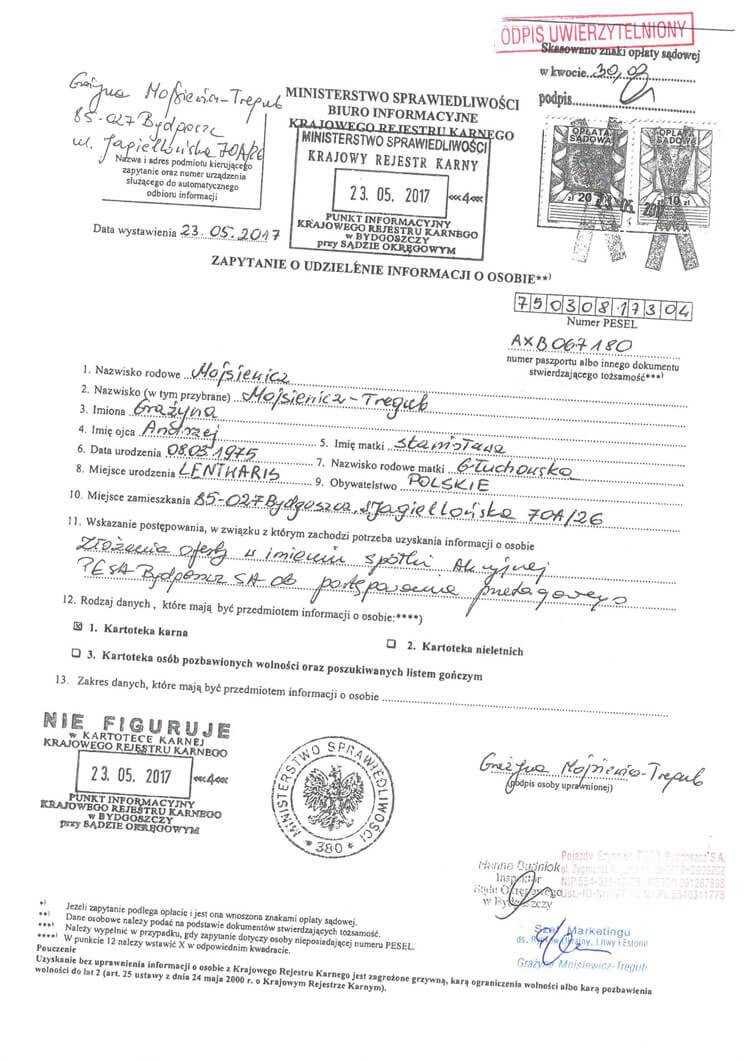 ODPIS UWIERZYTELNIONY
Skasowano znaki opłaty sądowej
w kwocie 30,02
podpis
Grażyna Mojsiewicz-Tregub
85-027 Bydgoszcz
ul. Jagiellońska 70A/26
Nazwa i adres podmiotu kierującego
zapytanie oraz numer urządzenia
służącego do automatycznego
odbioru informacji
MINISTERSTWO SPRAWIEDLIWOŚCI
BIURO INFORMACYJNE
KRAJOWEGO REJESTRU KARNEGO
MINISTERSTWO SPRAWIEDLIWOŚCI
KRAJOWY REJESTR KARNY
23. 05. 2017 «4«
PUNKT INFORMACYJNY
KRAJOWEGO REJESTRU KARNEGO
w BYDGOSZCZY
przy SĄDZIE OKRĘGOWYM
OPŁATA SĄDOWA
zł 20
OPŁATA SĄDOWA
10 zł
Data wystawienia 23.05.2017
ZAPYTANIE O UDZIELENIE INFORMACJI O OSOBIE**)
75030817304
Numer PESEL
AXB067180
numer paszportu albo innego dokumentu
stwierdzającego tożsamość***)
1. Nazwisko rodowe Mojsiewicz
2. Nazwisko (w tym przybrane) Mojsiewicz-Tregub
3. Imiona Grażyna
4. Imię ojca Andrzej
5. Imię matki Stanisława
6. Data urodzenia 08.03.1975
7. Nazwisko rodowe matki Głuchowska
8. Miejsce urodzenia LENTWARIS
9. Obywatelstwo POLSKIE
10. Miejsce zamieszkania 85-027 Bydgoszcz, Jagiellońska 70A/26
11. Wskazanie postępowania, w związku z którym zachodzi potrzeba uzyskania informacji o osobie
złożenia oferty w imieniu spółki Akcyjnej
PESA Bydgoszcz SA do postępowania przetargowego
12. Rodzaj danych , które mają być przedmiotem informacji o osobie:****)
☒ 1. Kartoteka karna
☐ 2. Kartoteka nieletnich
☐ 3. Kartoteka osób pozbawionych wolności oraz poszukiwanych listem gończym
13. Zakres danych, które mają być przedmiotem informacji o osobie
NIE FIGURUJE
w KARTOTECE KARNEJ
KRAJOWEGO REJESTRU KARNEGO
23. 05. 2017 «4«
PUNKT INFORMACYJNY
KRAJOWEGO REJESTRU KARNEGO
w BYDGOSZCZY
przy SĄDZIE OKRĘGOWYM
MINISTERSTWO SPRAWIEDLIWOŚCI
* 380 *
Grażyna Mojsiewicz-Tregub
(podpis osoby uprawnionej)
Hanna
Inspektor
Sądu Okręgowego
w Bydgoszczy
Pojazdy Szynowe PESA Bydgoszcz S.A.
Szef Marketingu
ds. Litwy i Estonii
Grażyna Mojsiewicz-Tregub
*) Jeżeli zapytanie podlega opłacie i jest ona wnoszona znakami opłaty sądowej.
**) Dane osobowe należy podać na podstawie dokumentów stwierdzających tożsamość.
***) Należy wypełnić w przypadku, gdy zapytanie dotyczy osoby nieposiadającej numeru PESEL.
****) W punkcie 12 należy wstawić X w odpowiednim kwadracie.
Pouczenie
Uzyskanie bez uprawnienia informacji o osobie z Krajowego Rejestru Karnego jest zagrożone grzywną, karą ograniczenia wolności albo karą pozbawienia
wolności do lat 2 (art. 25 ustawy z dnia 24 maja 2000 r. o Krajowym Rejestrze Karnym).